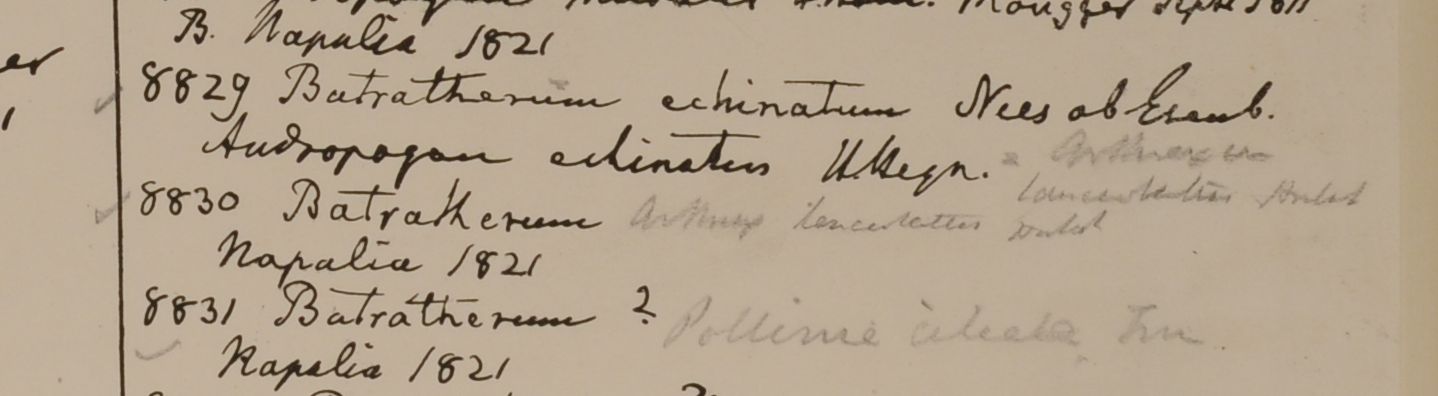 B. Napalia 1821
8829 Batratherum echinatum Nees ab Esenb.
Andropogon echinatus H. Heyn. = Arthraxon
lanceolatus Hochst
8830 Batratherum Arthrax lanceolatus Hochst
Napalia 1821
8831 Batratherum ? Pollinia ciliata Trin
Napalia 1821